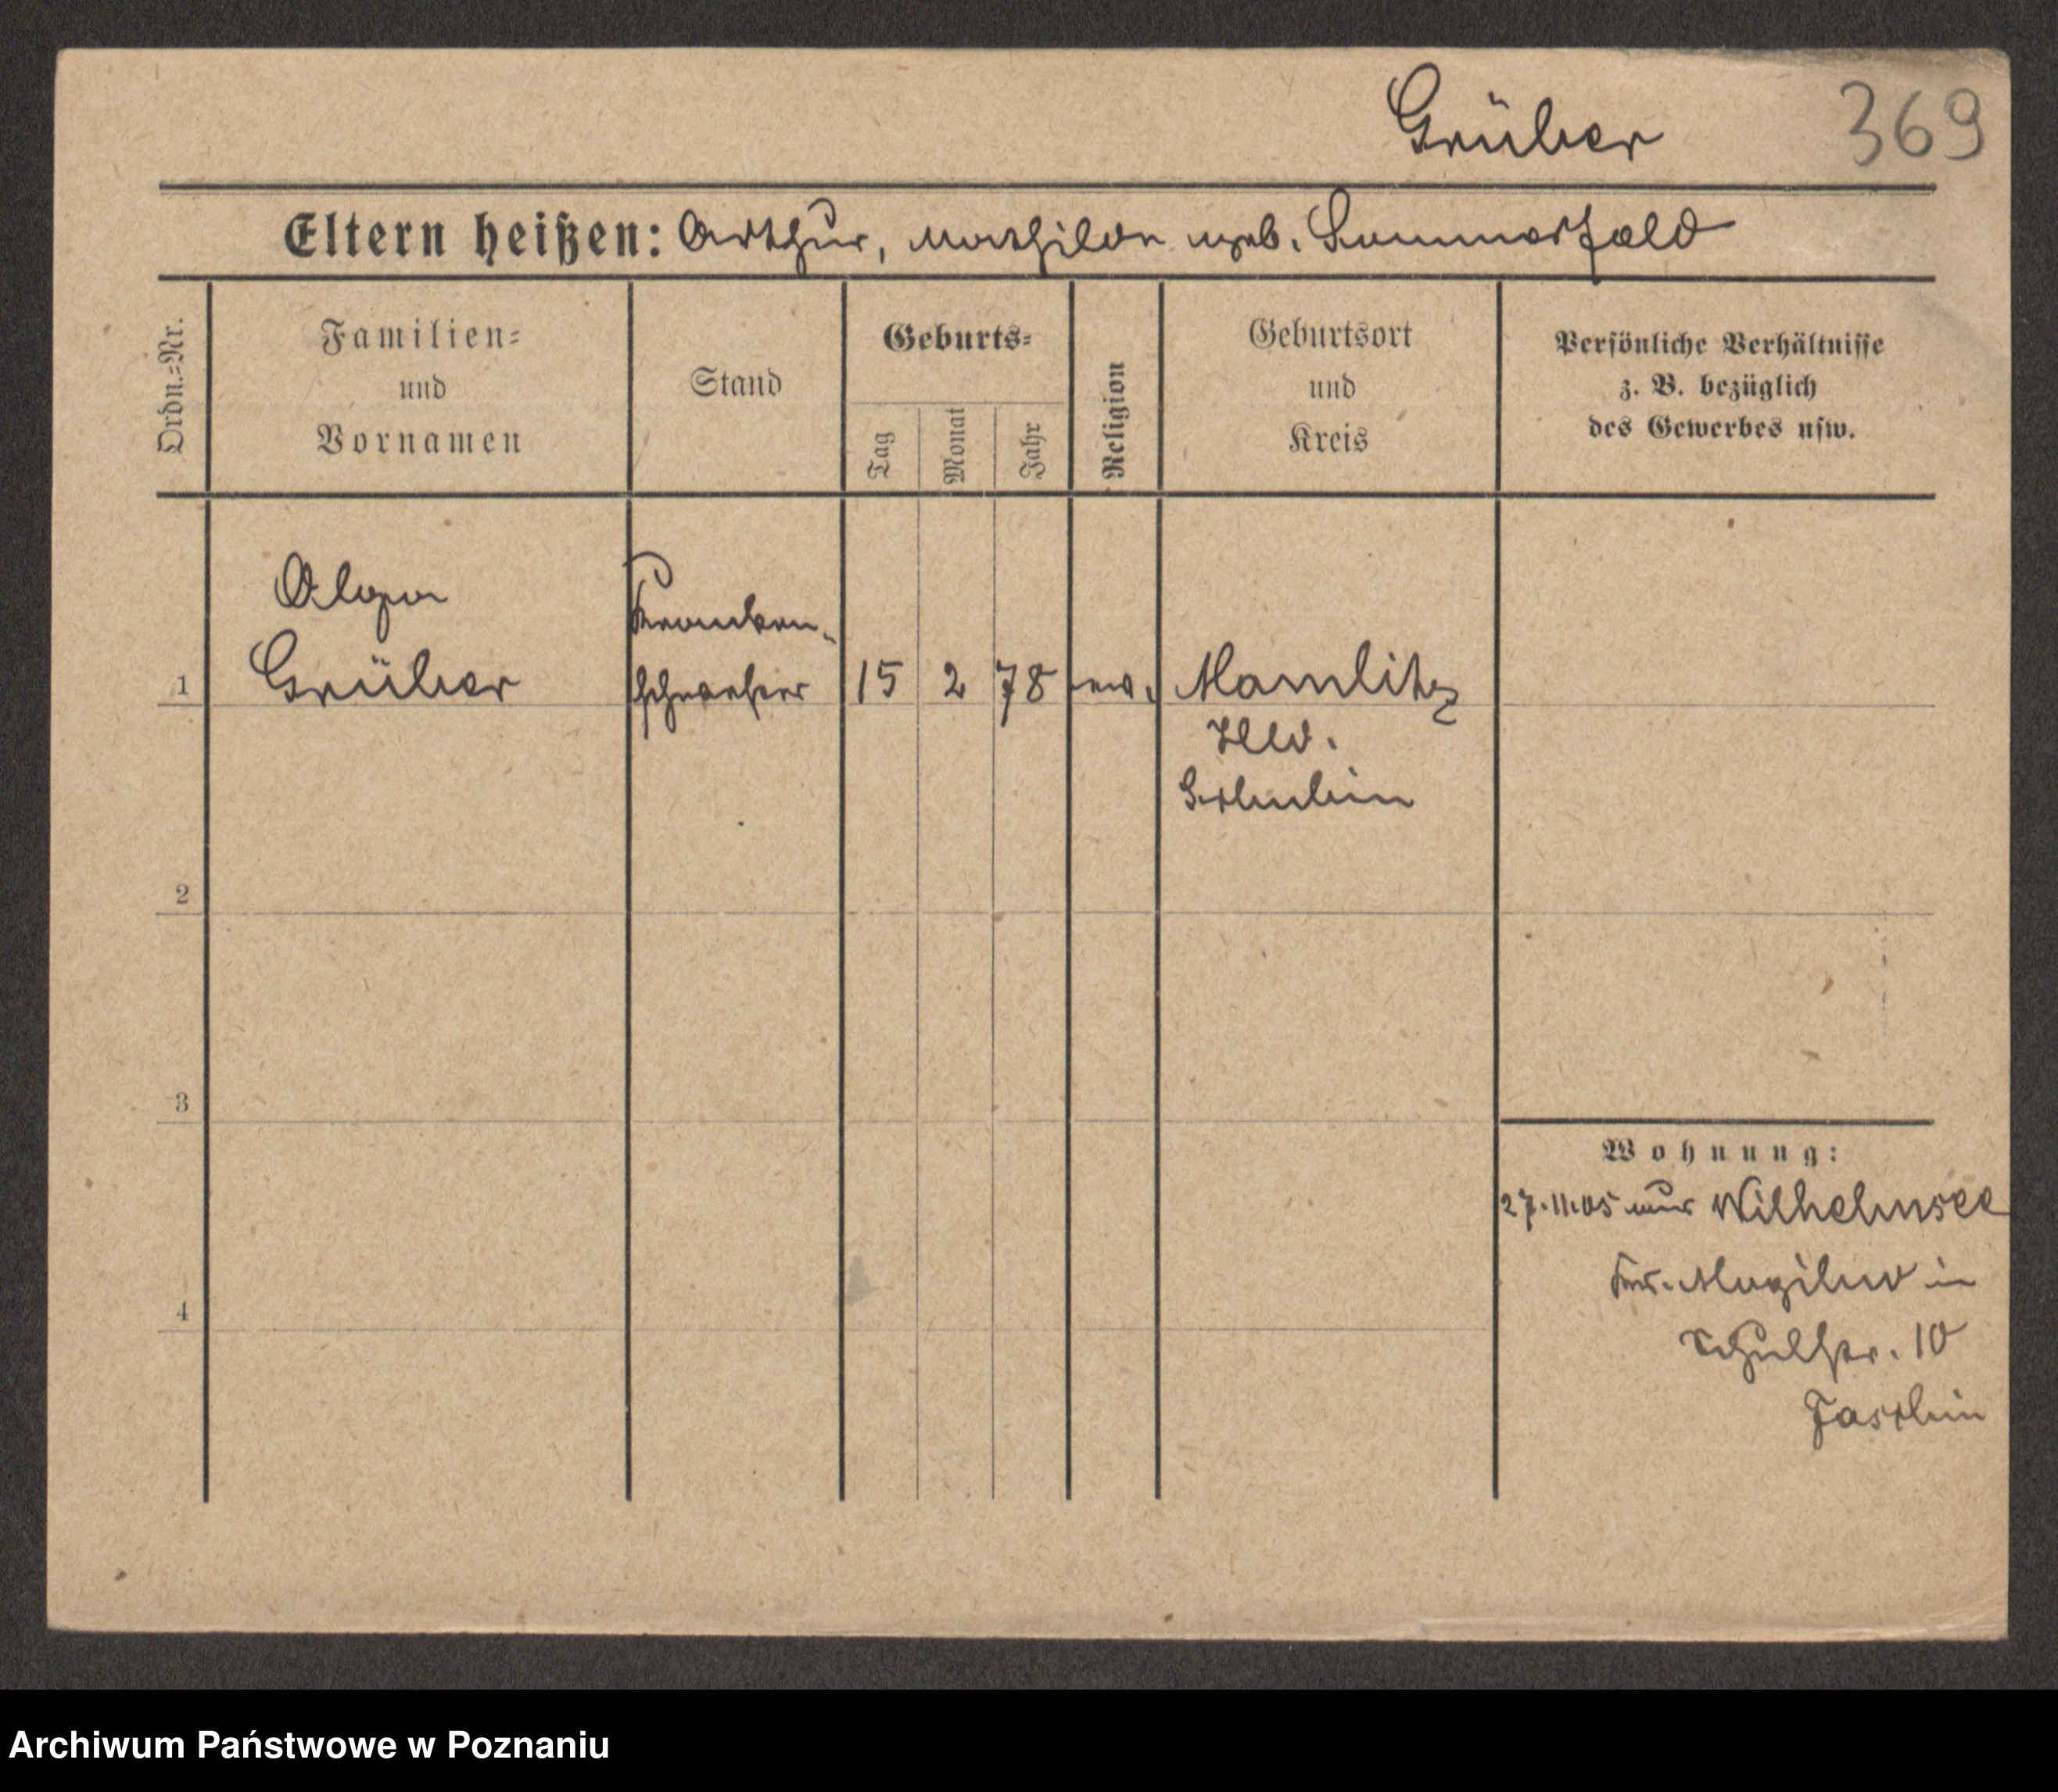 Grüber
369
Eltern heißen: Arthur, Mathilde geb. Sommerfeld
Ordn.-Nr.
Familien-
und
Vornamen
Stand
Geburts-
Tag
Monat
Jahr
Religion
Geburtsort
und
Kreis
Persönliche Verhältnisse
z. B. bezüglich
des Gewerbes usw.
Olga
Kranken-
1 Grüber schwester 15 2 78 ev. Mamlitz
Schubin
2
3
4
Wohnung:
27.11.05 aus Wilhelmsee
Kr. Mogilno in
Schulstr. 10